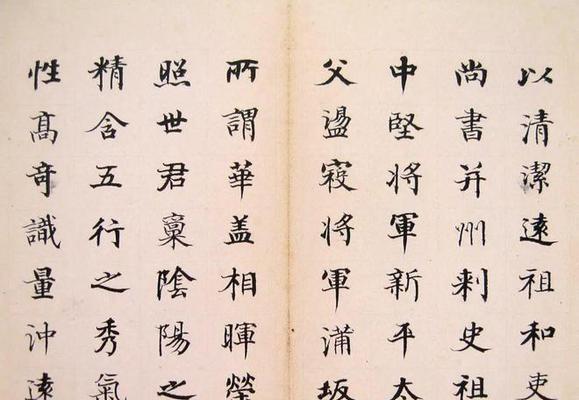 以清潔遠祖和吏
尚書并州刺史祖
中堅將軍新平太
父盪寇將軍蒲坂
所謂華盖相暉瑩
照世君稟陰陽之
精含五行之秀氣
性髙竒識量沖遠